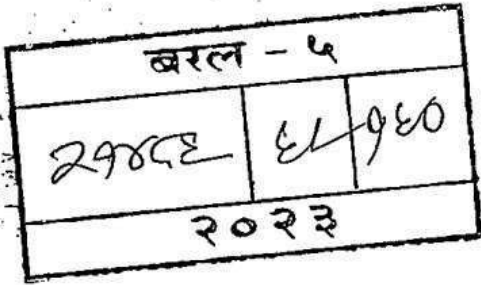 बरल - ५
२१४८६ ६८ १६०
२०२३